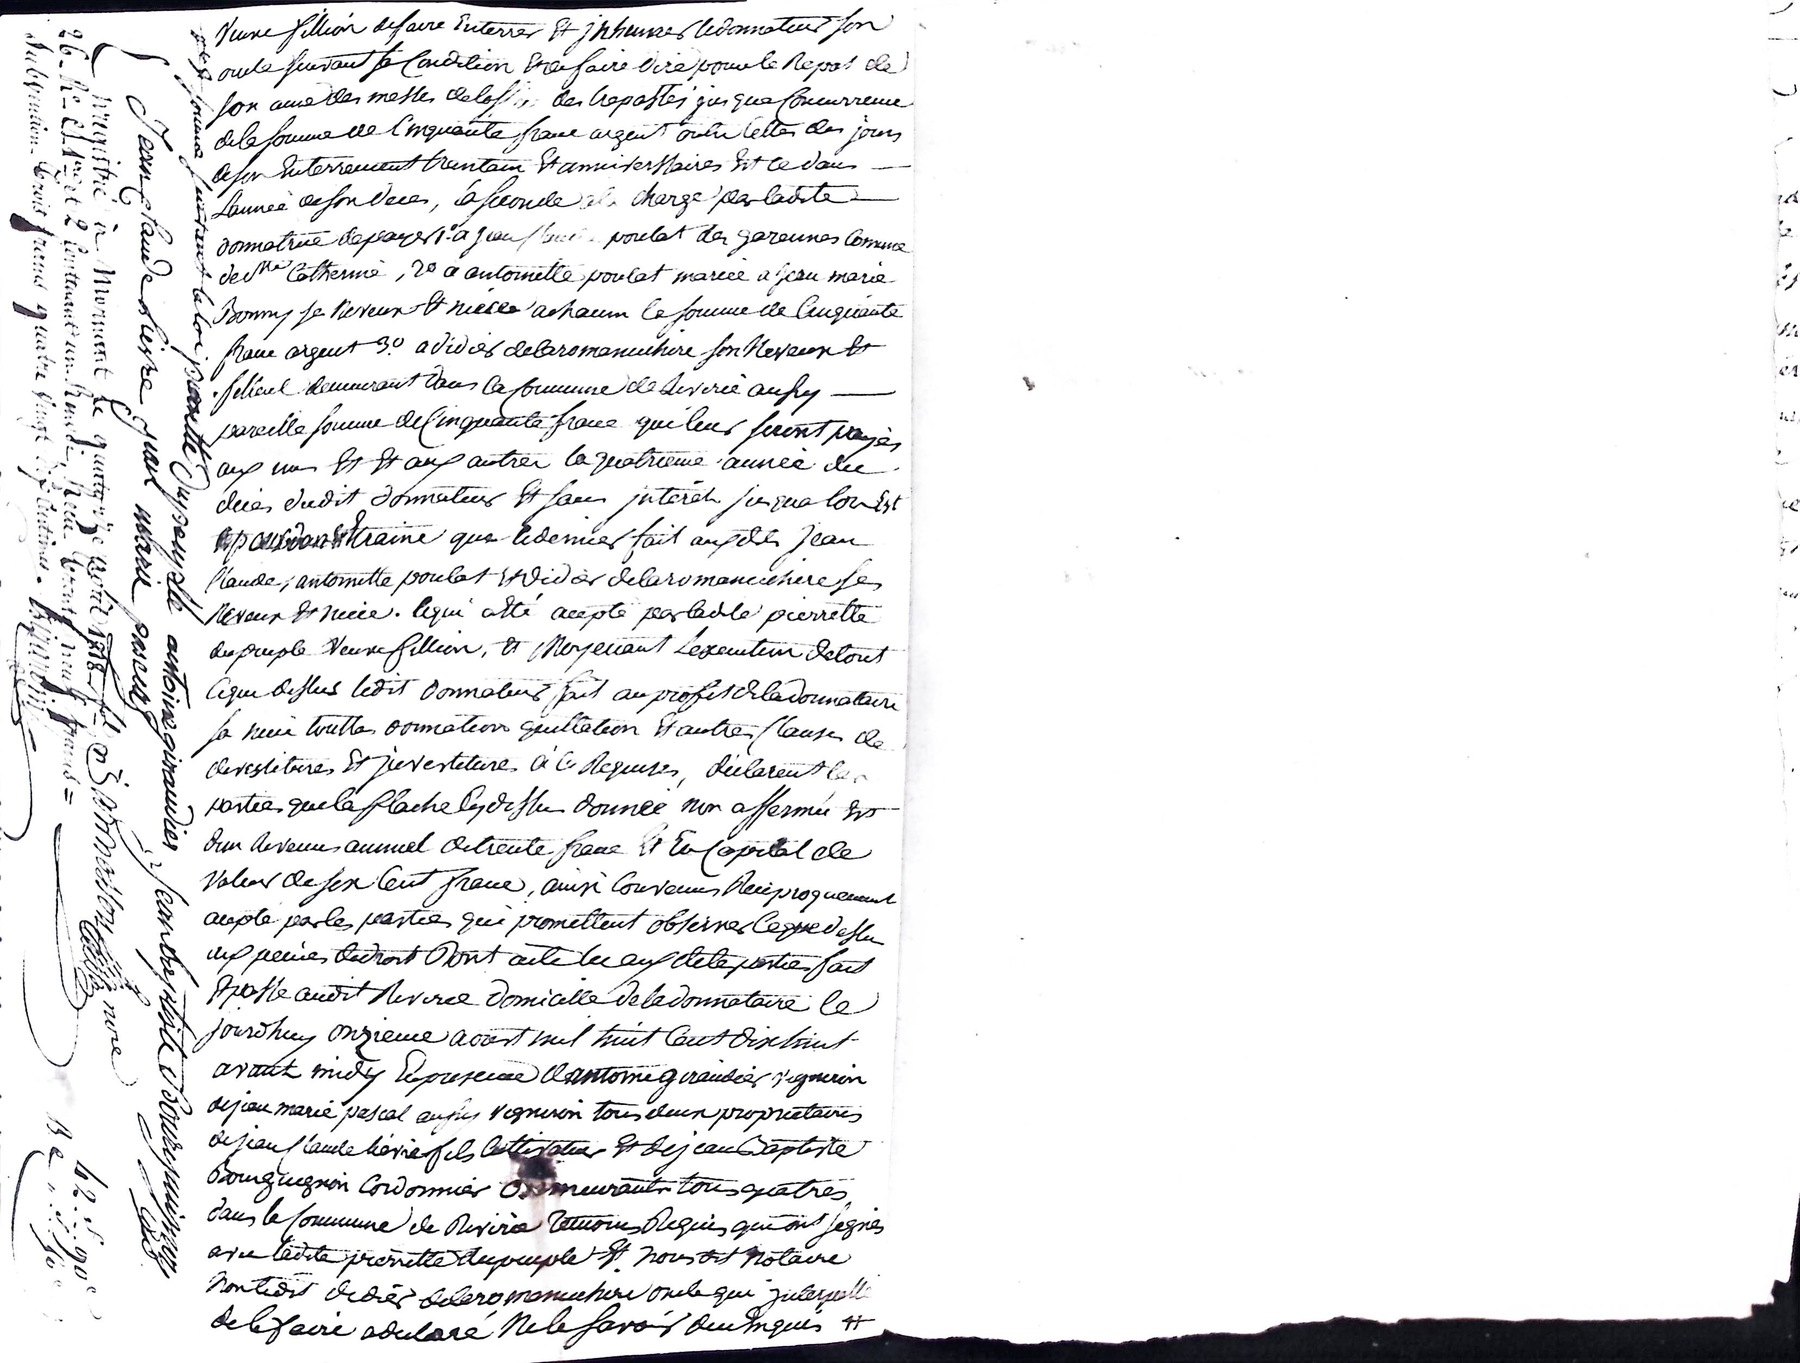 veuve fillion de faire Enterrer Et jnhumer ledonnateur son
oncle suivant sa Condition Et de faire dire pour le Repos de
son ame des messes de des trepassés jusqua Concurrence
de la somme de Cinquante franc argent outre celles des jours
de son Enterrement trentain Et anniversaires Et ce dans
lannée de son deces, la seconde charge par ladite
donnatrice de payer 1º a jean poulat des garennes Comune
de Ste Catherine, 2º a antoinette poulat mariée a jean marie
Bonny se Neveux Et niéce a chacun la somme de Cinquante
franc argent 3º a didier delaromanchire son Neveux Et
filleul demeurant dans la Commune de Riverie aussy
pareille somme de Cinquante franc qui leur seront payés
aux uns Et Et aux autres la quatrieme année du
déces dudit donnateur Et sans jntérêts jusqua lors Est
que ledernier fait auxdits jean
Claude, antoinette poulat Et didier delaromanchire ses
Neveux Et niéce. Cequi a Eté acepté par ladite pierrette
dupeuple veuve fillion, Et Moyenant Lexecution de tout
Ceque dessus ledit donnateur fait au profit de la donnataire
sa niéce touttes donnations quittation Et autres Clauses de
devestitures Et jnvestitures à ce Requises, déclarent les
parties que la flache Cydessus donnée non affermée Est
dun Revenus annuel de trente franc Et En Capital de
valeur de six Cent franc, ainsi Convenus Reciproquement
acepté par les parties qui promettent observer Ceque dessus
aux peines de droit Dont acte lu aux dites parties fait
Et passé audit Riverie domicille de la donnataire le
jourdhuy onzieme aoust mil huit Cent dix huit
avant midy En presence dantoine giraudier vigneron
de jean marie pascal aussy vigneron tous deux propriétaires
de jean Claude fils Cultivateur Et de jean Baptiste
Bourguignon Cordonnier Demeurants tous quatres
dans la Commune de Riverie témoins Requis qui ont signés
avec ladite pierrette dupeuple Et Nous dit Notaire
Non ledit didier delaromanchire oncle qui jnterpellé
de le faire a declaré Ne le savoir deux Enquis Et
somme suivant la loi, pierrette Dupeuple antoine giraudier jean baptiste Bourguignon
Jean claude jean marie pascal
Enregistré à Mornant le quinze 1818 fº
26 Rº Cs 1re et 2 Contenant un Renvoi, Reçu trente neuf francs
Subvention trois francs quatre vingt dix centimes.
42. 90